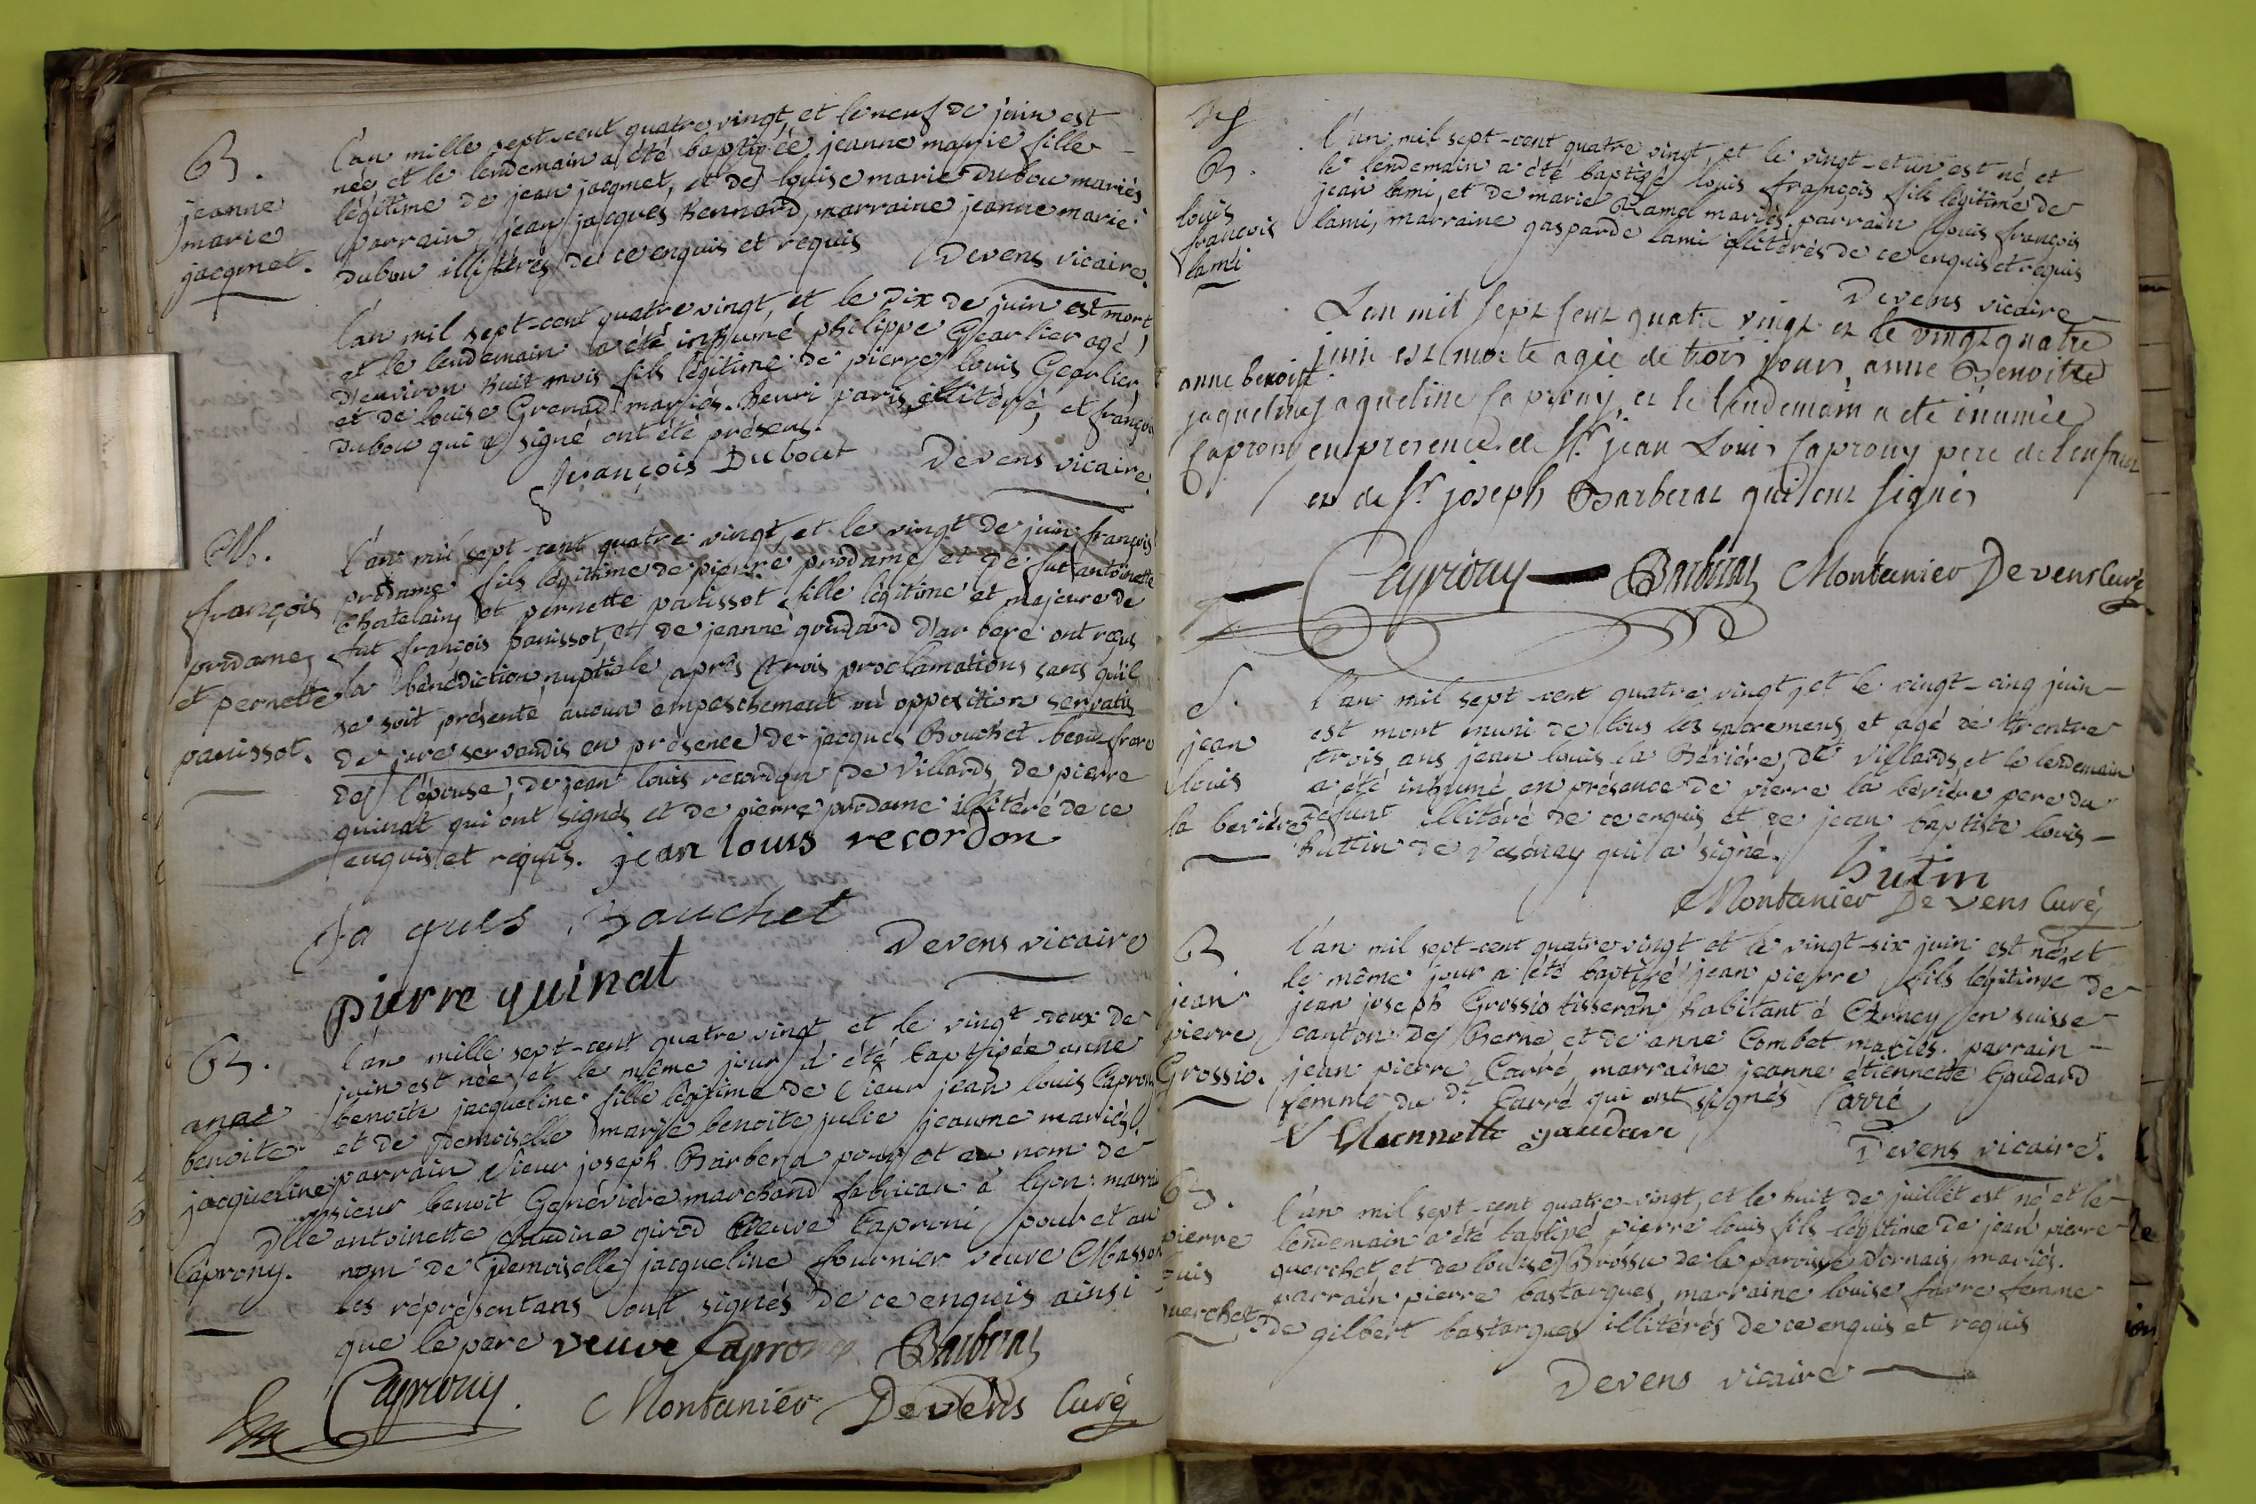 B.
jeanne
marie
jacqmet.
l'an mille sept-cent quatre vingt, et le neuf de juin est
née et le lendemain a été baptisée jeanne marie fille
légitime de jean jacqmet, et de louise marie Dubou mariés
parrain jean jacques Bennard, marraine jeanne marie
dubou illitérés de ce enquis et requis Devens vicaire.
l'an mil sept-cent quatre vingt, et le dix de juin est mort
et le lendemain a été inhumé philippe Gearlier agé
d'environ huit mois fils légitime de pierre louis Gearlier
et de louise Grenad mariés. henri paris illitéré, et françois
dubou qui a signé ont été présens.
françois Dubout Devens vicaire.
M.
françois
prodame
et pernette
panissot.
l'an mil sept-cent quatre vingt, et le vingt de juin, françois
prodame fils légitime de pierre prodame et de fut antoinette
Chatelain, et pernette panissot fille légitime et majeure de
fut françois panissot, et de jeanne goudard d'arbere ont reçus
la bénédiction nuptiale après trois proclamations sans qu'il
se soit présenté aucun empeschement ni opposition servatis
de jure servandis en présence de jacques Bouchet beau frere
de l'épouse, de jean louis recordon de Villards, de pierre
quinat qui ont signés et de pierre prodame illitéré de ce
enquis et requis. jean louis recordon
Jaques Bouchet
Devens vicaire
pierre quinat
B.
anne
benoite
jacqueline
Caprony.
l'an mille sept-cent quatre vingt et le vingt-deux de
juin est née, et le même jour a été baptisée anne
benoite jacqueline fille légitime de sieur jean louis Caprony
et de Demoiselle marie benoite julie jeaume mariés,
parrain sieur joseph Barberat pour et au nom de
sieur benoit Genévière marchand fabrican à lyon. marraine
Dlle antoinette claudine girod veuve Caproni pour et au
nom de Demoiselle jacqueline fournier veuve Masson
les réprésentans ont signés de ce enquis ainsi
que le pere veuve Caprony Barberat
Caprony. Montanier Devens Curé
B.
louis
françois
lami
l'an mil sept-cent quatre vingt, et le vingt-et un est né et
le lendemain a été baptisé louis françois fils légitime de
jean lami, et de marie Ramel mariés, parrain louis françois
lami, marraine gasparde lami illitérés de ce enquis et requis
Devens vicaire
anne benoitte
jaqueline
Caprony
L'an mil sept cent quatre vingt et le vingt quatre
juin est morte agée de trois jours anne Benoitte
jaqueline Caprony, et le lendemain a été inumée
en presence de Sr. jean Louis Caprony pere de l'enfant
et de Sr joseph Barberat qui ont signés
Caprony Barberat Montanier Devens Curé
S.
jean
louis
la beviére
l'an mil sept-cent quatre vingt, et le vingt-cinq juin
est mort muni de tous les sacremens et agé de trentre
trois ans jean louis la Béviére, de Villards, et le lendemain
a été inhumé en présence de pierre la béviére pere du
défunt illitéré de ce enquis, et de jean baptiste louis
huttin de Vesenay qui a signé.
hutin
Montanier Devens Curé
B
jean
pierre
Grossio.
l'an mil sept-cent quatre vingt et le vingt-six juin est né, et
le même jour a été baptisé jean pierre fils légitime de
jean joseph Grossio tisseran habitant à Arney en suisse
canton de Berne et de anne Combet mariés. parrain
jean pierre Carré, marraine jeanne étiennette Gaudard
femme du dt. Carré qui ont signés Carré
Etiennette gaudare
Devens vicaire.
B.
pierre
louis
querchet.
l'an mil sept-cent quatre-vingt, et le huit de juillet est né et le
lendemain a été baptisé pierre louis fils légitime de jean pierre
querchet et de louise Brossu de la paroisse d'ornais, mariés.
parrain pierre bastargues, marraine louise farre femme
de gilbert bastargues illitérés de ce enquis et requis
Devens vicaire